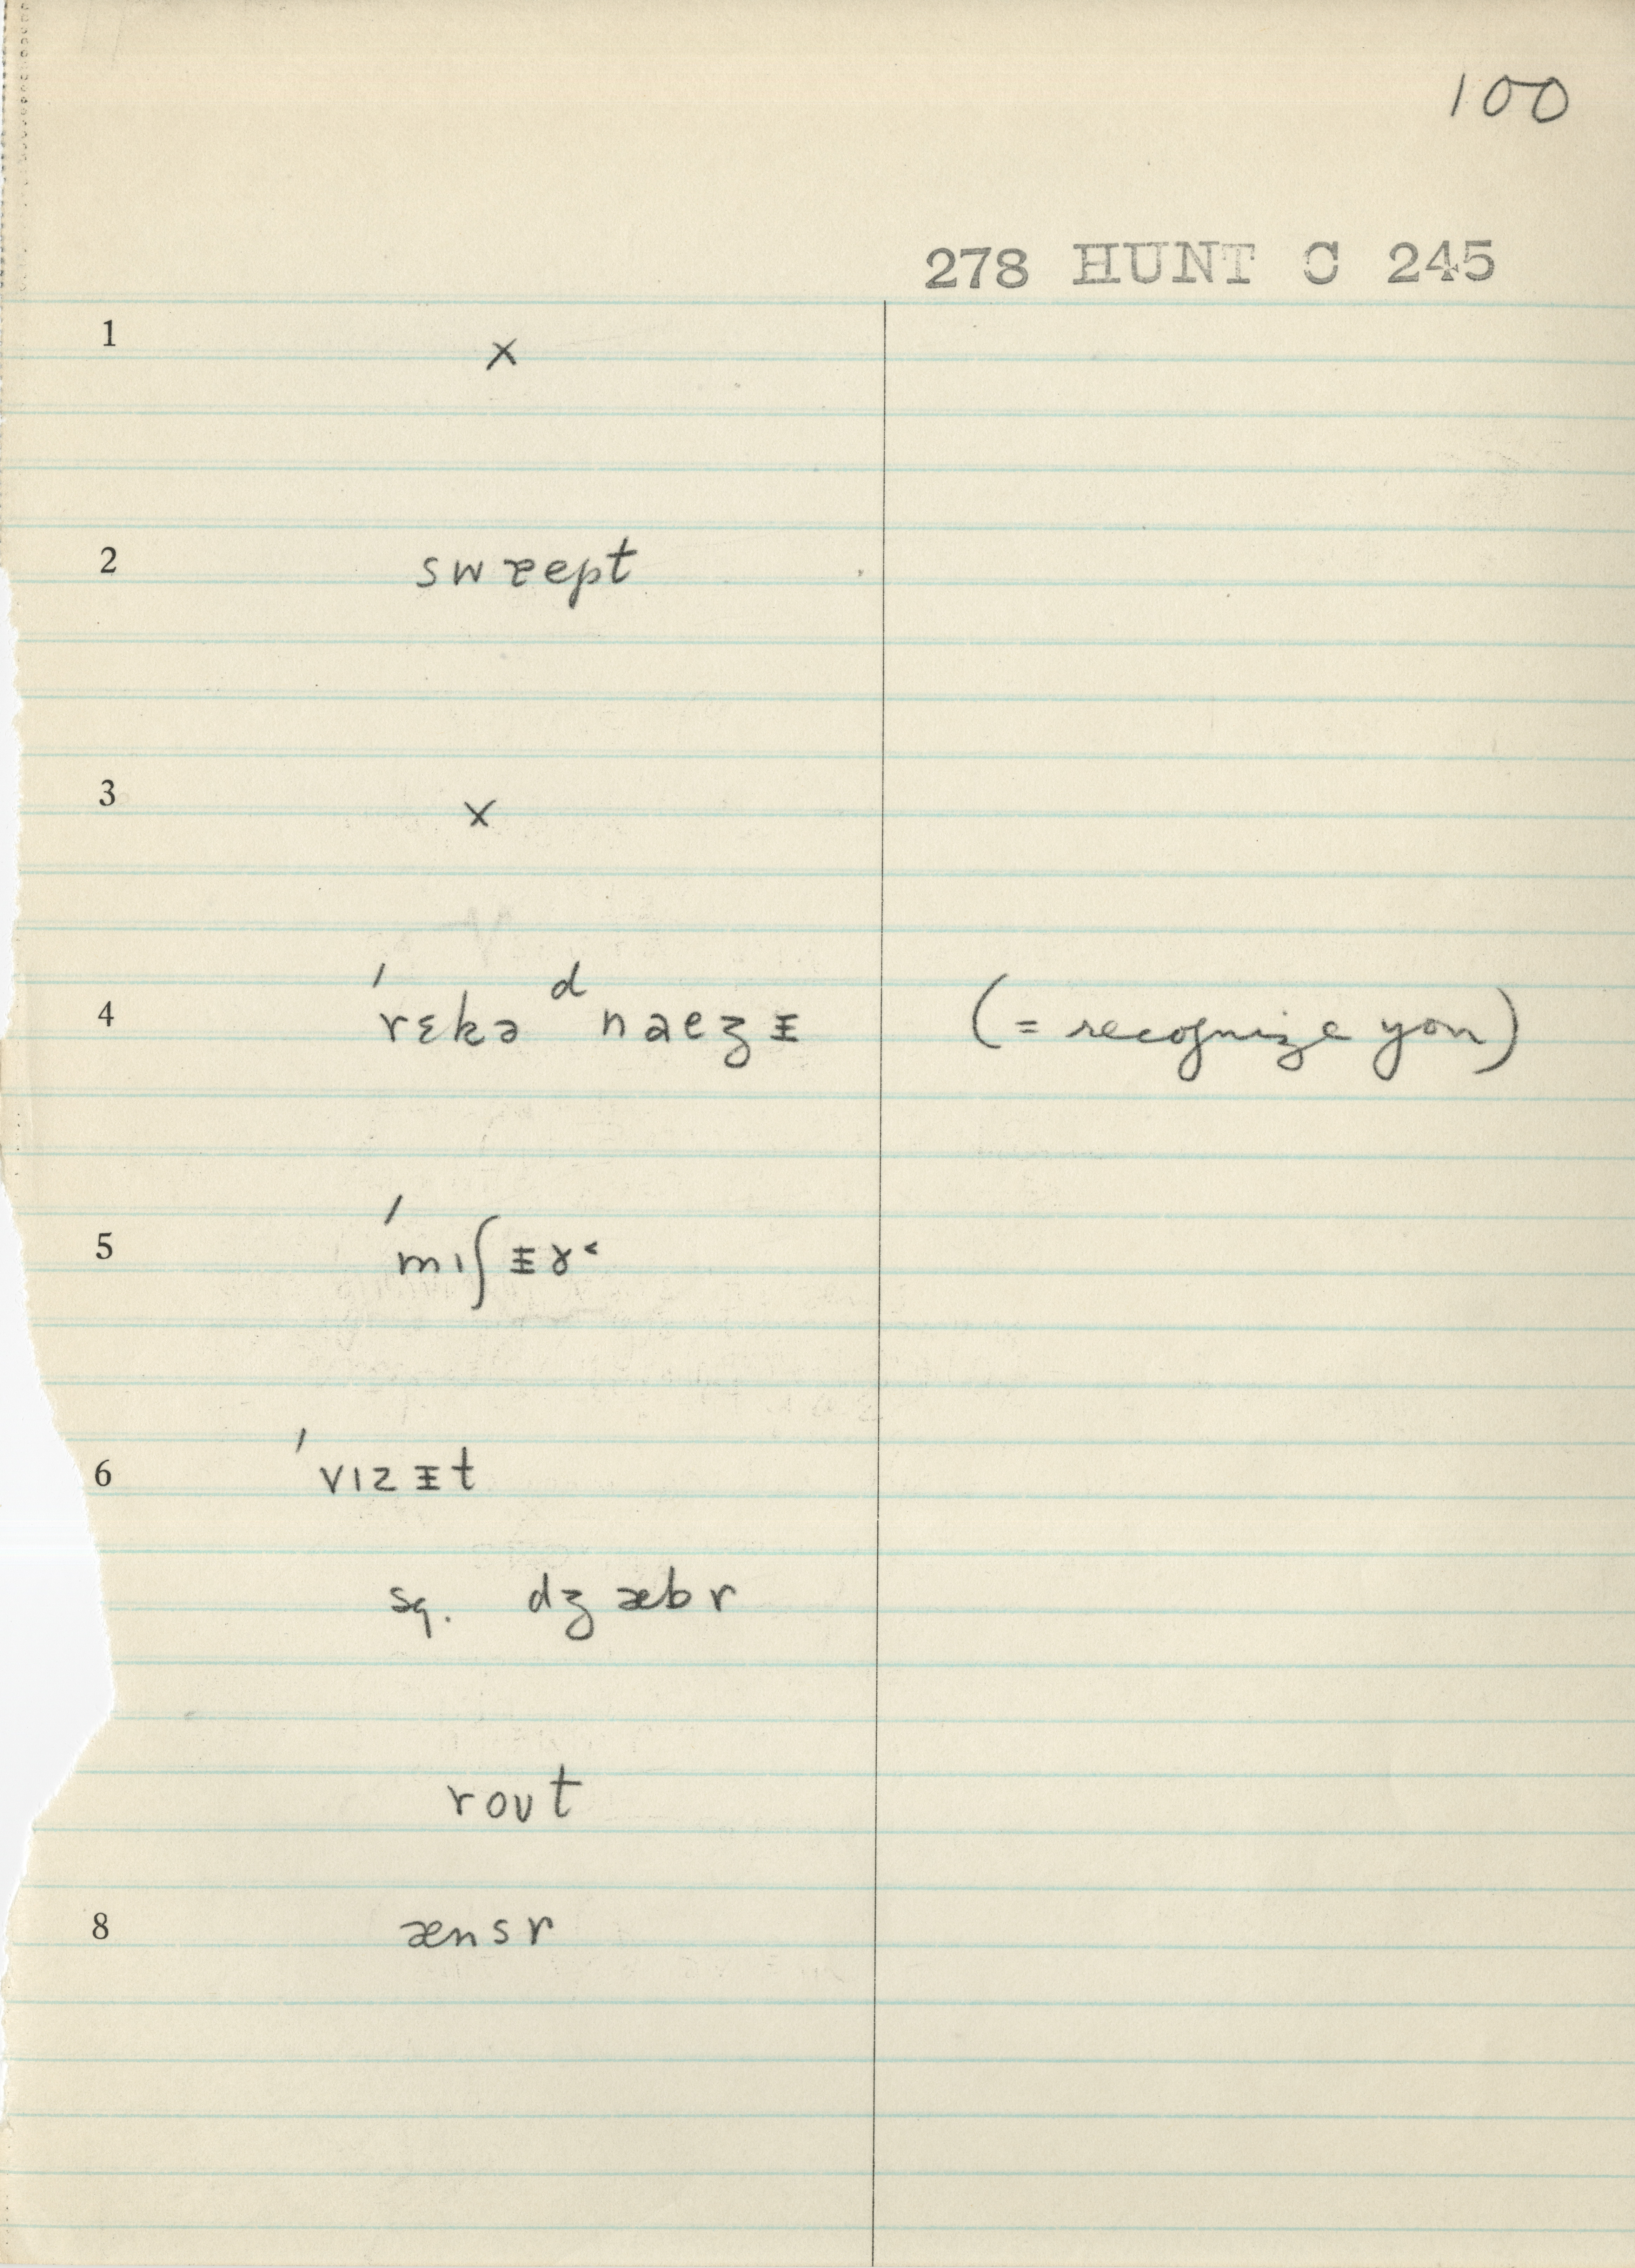 100
278 HUNT C 245
1 x
2 swɛept
3 x
4 ˈrɛkəᵈnaezᵻ (= recognize you)
5 ˈmɪʃᵻɤ˂
6 ˈvɪzᵻt
sq. dʒæbr
roʊt
8 ænsr